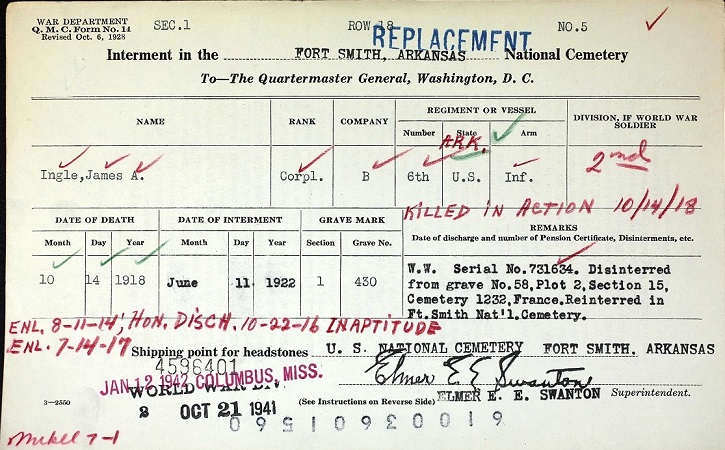 WAR DEPARTMENT
Q. M. C. Form No. 14
Revised Oct. 6, 1928
SEC.1 ROW 18 NO.5
REPLACEMENT
Interment in the FORT SMITH, ARKANSAS National Cemetery
To—The Quartermaster General, Washington, D. C.
NAME RANK COMPANY REGIMENT OR VESSEL DIVISION, IF WORLD WAR SOLDIER
Number State Arm
ARK.
Ingle,James A. Corpl. B 6th U.S. Inf. 2nd
KILLED IN ACTION 10/14/18
DATE OF DEATH DATE OF INTERMENT GRAVE MARK REMARKS
Month Day Year Month Day Year Section Grave No. Date of discharge and number of Pension Certificate, Disinterments, etc.
10 14 1918 June 11 1922 1 430
W.W. Serial No.731634. Disinterred
from grave No.58,Plot 2,Section 15,
Cemetery 1232,France.Reinterred in
Ft.Smith Nat'l.Cemetery.
ENL. 8-11-14; HON. DISCH. 10-22-16 INAPTITUDE
ENL. 7-14-17
Shipping point for headstones U. S. NATIONAL CEMETERY FORT SMITH, ARKANSAS
4596401
JAN 12 1942 COLUMBUS, MISS.
WORLD WAR
Elmer E. Swanton
2 OCT 21 1941
(See Instructions on Reverse Side) ELMER E. E. SWANTON Superintendent.
3—2550